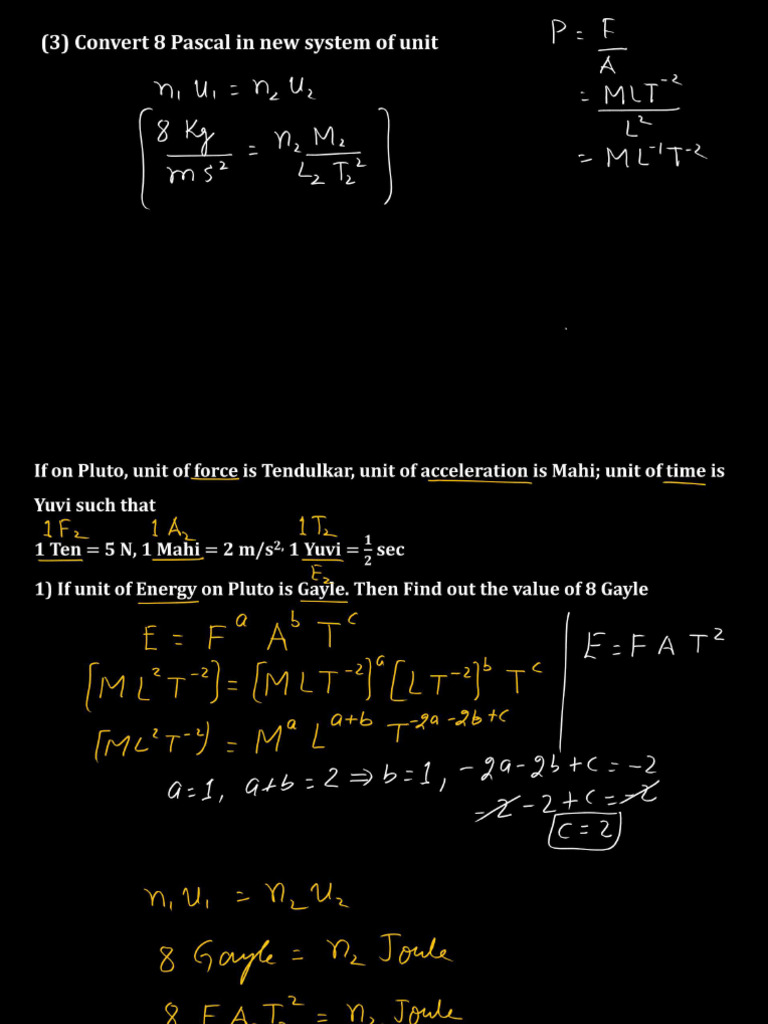 (3) Convert 8 Pascal in new system of unit
P = F/A
n₁ u₁ = n₂ u₂
= MLT⁻²/L²
[8 Kg/m s² = n₂ M₂/L₂ T₂²]
= ML⁻¹T⁻²
If on Pluto, unit of force is Tendulkar, unit of acceleration is Mahi; unit of time is
Yuvi such that
1 F₂ 1 A₂ 1 T₂
1 Ten = 5 N, 1 Mahi = 2 m/s², 1 Yuvi = 1/2 sec
E₂
1) If unit of Energy on Pluto is Gayle. Then Find out the value of 8 Gayle
E = Fᵃ Aᵇ Tᶜ
E = F A T²
[ML²T⁻²] = [MLT⁻²]ᵃ [LT⁻²]ᵇ Tᶜ
[ML²T⁻²] = Mᵃ Lᵃ⁺ᵇ T⁻²ᵃ⁻²ᵇ⁺ᶜ
a=1, a+b=2 ⇒ b=1, -2a-2b+c=-2
-2-2+c=-2
c=2
n₁ u₁ = n₂ u₂
8 Gayle = n₂ Joule
8 F A₂T₂² = n₂ Joule